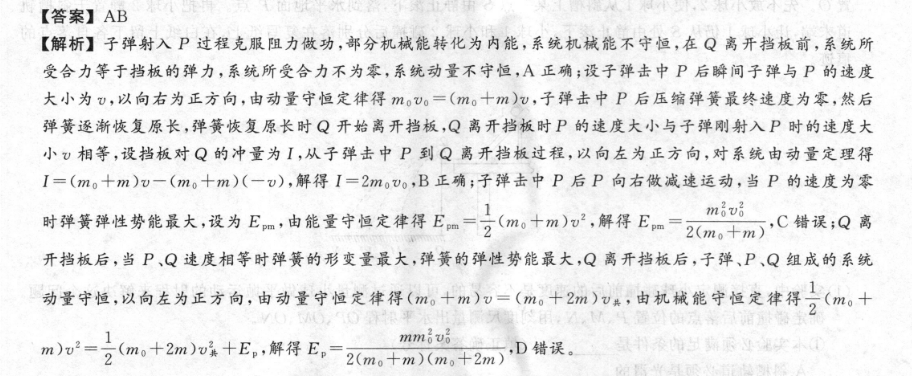 【答案】AB
【解析】子弹射入 P 过程克服阻力做功,部分机械能转化为内能,系统机械能不守恒,在 Q 离开挡板前,系统所
受合力等于挡板的弹力,系统所受合力不为零,系统动量不守恒,A 正确;设子弹击中 P 后瞬间子弹与 P 的速度
大小为 v,以向右为正方向,由动量守恒定律得 m₀v₀=(m₀+m)v,子弹击中 P 后压缩弹簧最终速度为零,然后
弹簧逐渐恢复原长,弹簧恢复原长时 Q 开始离开挡板,Q 离开挡板时 P 的速度大小与子弹刚射入 P 时的速度大
小 v 相等,设挡板对 Q 的冲量为 I,从子弹击中 P 到 Q 离开挡板过程,以向左为正方向,对系统由动量定理得
I=(m₀+m)v-(m₀+m)(-v),解得 I=2m₀v₀,B 正确;子弹击中 P 后 P 向右做减速运动,当 P 的速度为零
时弹簧弹性势能最大,设为 Eₚₘ,由能量守恒定律得 Eₚₘ=1/2(m₀+m)v²,解得 Eₚₘ=m₀²v₀²/2(m₀+m),C 错误;Q 离
开挡板后,当 P、Q 速度相等时弹簧的形变量最大,弹簧的弹性势能最大,Q 离开挡板后,子弹、P、Q 组成的系统
动量守恒,以向左为正方向,由动量守恒定律得(m₀+m)v=(m₀+2m)v共,由机械能守恒定律得1/2(m₀+
m)v²=1/2(m₀+2m)v共²+Eₚ,解得 Eₚ=mm₀²v₀²/2(m₀+m)(m₀+2m),D 错误。